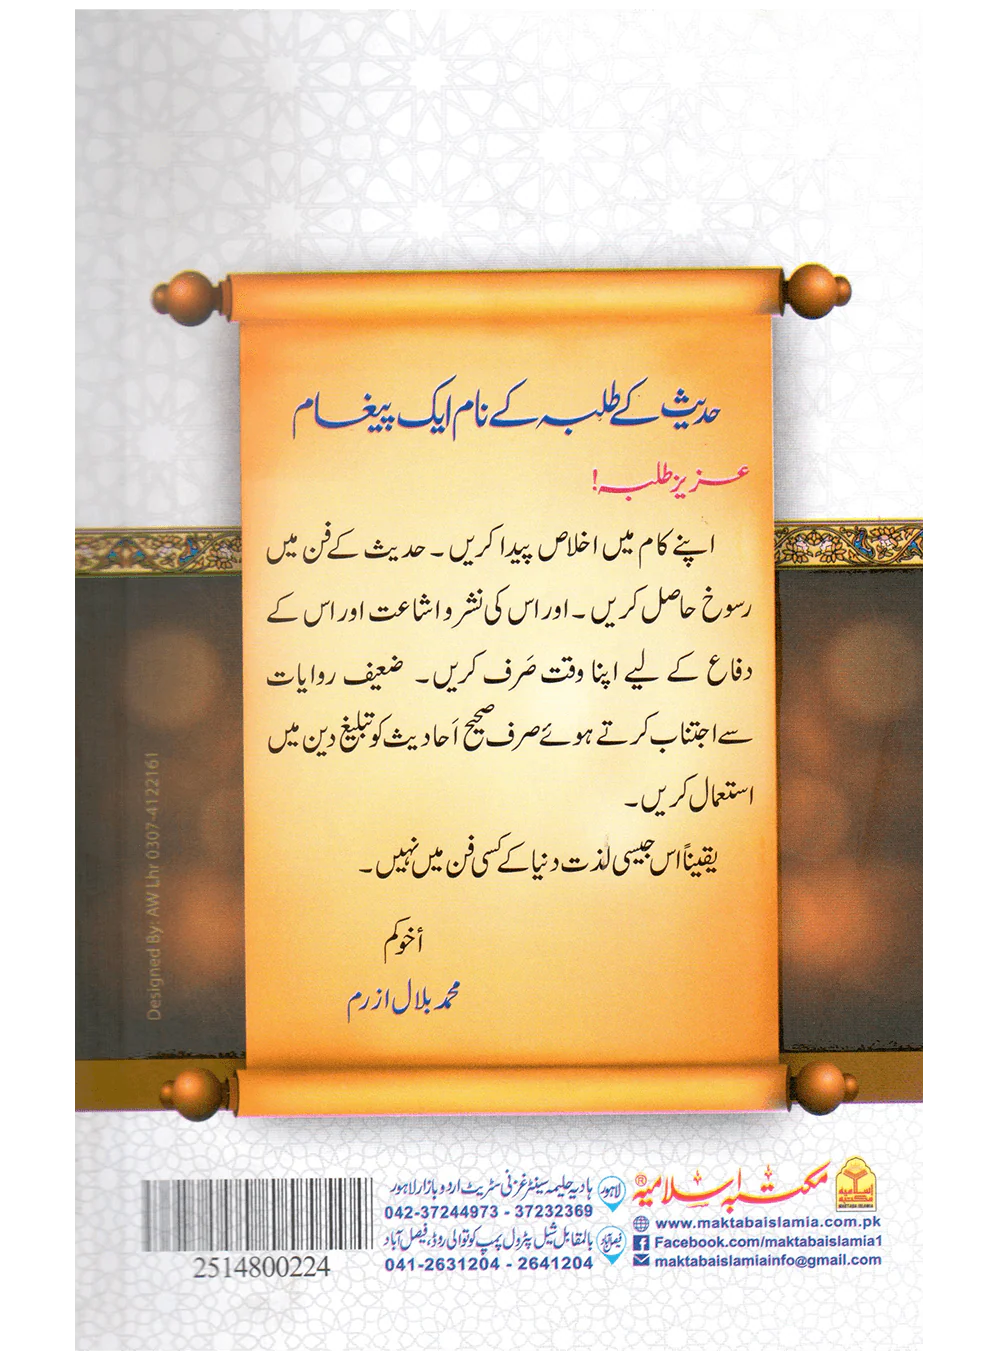 حدیث کے طلبہ کے نام ایک پیغام
عزیز طلبہ!
اپنے کام میں اخلاص پیدا کریں۔ حدیث کے فن میں
رسوخ حاصل کریں۔ اور اس کی نشر و اشاعت اور اس کے
دفاع کے لیے اپنا وقت صَرف کریں۔ ضعیف روایات
سے اجتناب کرتے ہوئے صرف صحیح اَحادیث کو تبلیغ دین میں
استعمال کریں۔
یقیناً اس جیسی لذت دنیا کے کسی فن میں نہیں۔
أخوکم
محمد بلال ازرم
Designed By: AW Lhr 0307-4122161
مکتبہ اسلامیہ®
اسلامیہ مکتبہ
MAKTABA ISLAMIA
www.maktabaislamia.com.pk
Facebook.com/maktabaislamia1
maktabaislamiainfo@gmail.com
لاہور ہادیہ حلیمہ سینٹر غزنی سٹریٹ اردو بازار لاہور
042-37244973 - 37232369
فیصل آباد بالمقابل شیل پٹرول پمپ کوتوالی روڈ، فیصل آباد
041-2631204 - 2641204
2514800224